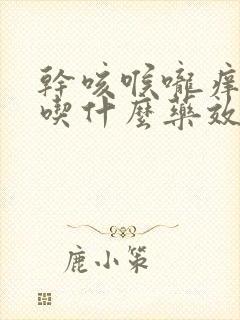 幹咳喉嚨痒
喫什麼藥效
鹿小策